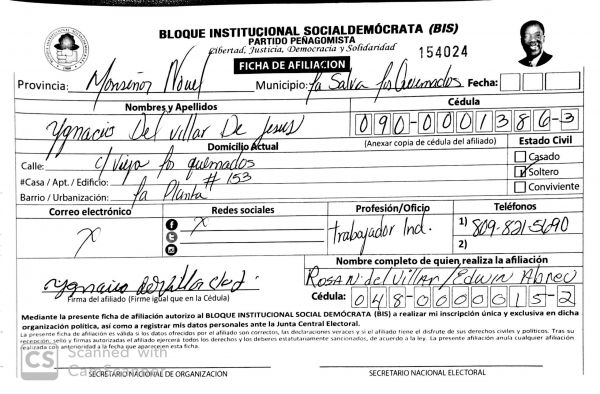 BLOQUE INSTITUCIONAL SOCIALDEMÓCRATA (BIS)
PARTIDO PEÑAGOMISTA
Libertad, Justicia, Democracia y Solidaridad
154024
FICHA DE AFILIACION
Provincia: Monseñor Nouel Municipio: La Salvia los Quemados Fecha:
Nombres y Apellidos Cédula
Ygnacio Del Villar De Jesus 090-0001386-3
Domicilio Actual (Anexar copia de cédula del afiliado) Estado Civil
Calle: c/ vieja los quemados Casado
#Casa / Apt. / Edificio: #153 Soltero
Barrio / Urbanización: La Planta Conviviente
Correo electrónico Redes sociales Profesión/Oficio Teléfonos
X X trabajador Ind. 1) 809-821-5690
2)
Nombre completo de quien realiza la afiliación
Rosa N. del Villar / Edwin Abreu
Firma del afiliado (Firme igual que en la Cédula) Cédula: 048-0000015-2
Mediante la presente ficha de afiliación autorizo al BLOQUE INSTITUCIONAL SOCIAL DEMÓCRATA (BIS) a realizar mi inscripción única y exclusiva en dicha
organización política, así como a registrar mis datos personales ante la Junta Central Electoral.
La presente ficha de afiliación es válida si los datos ofrecidos por el afiliado son correctos, las declaraciones veraces y si el afiliado tiene el disfrute de sus derechos civiles y políticos. Tras su
recepción, sello y firmas autorizadas el afiliado ejercerá todos los derechos y los deberes estatutariamente sancionados, de acuerdo a la ley. La presente afiliación anula cualquier afiliación
realizada con anterioridad a la fecha que aparecen esta ficha.
CS Scanned with
CamScanner
SECRETARIO NACIONAL DE ORGANIZACIÓN SECRETARIO NACIONAL ELECTORAL